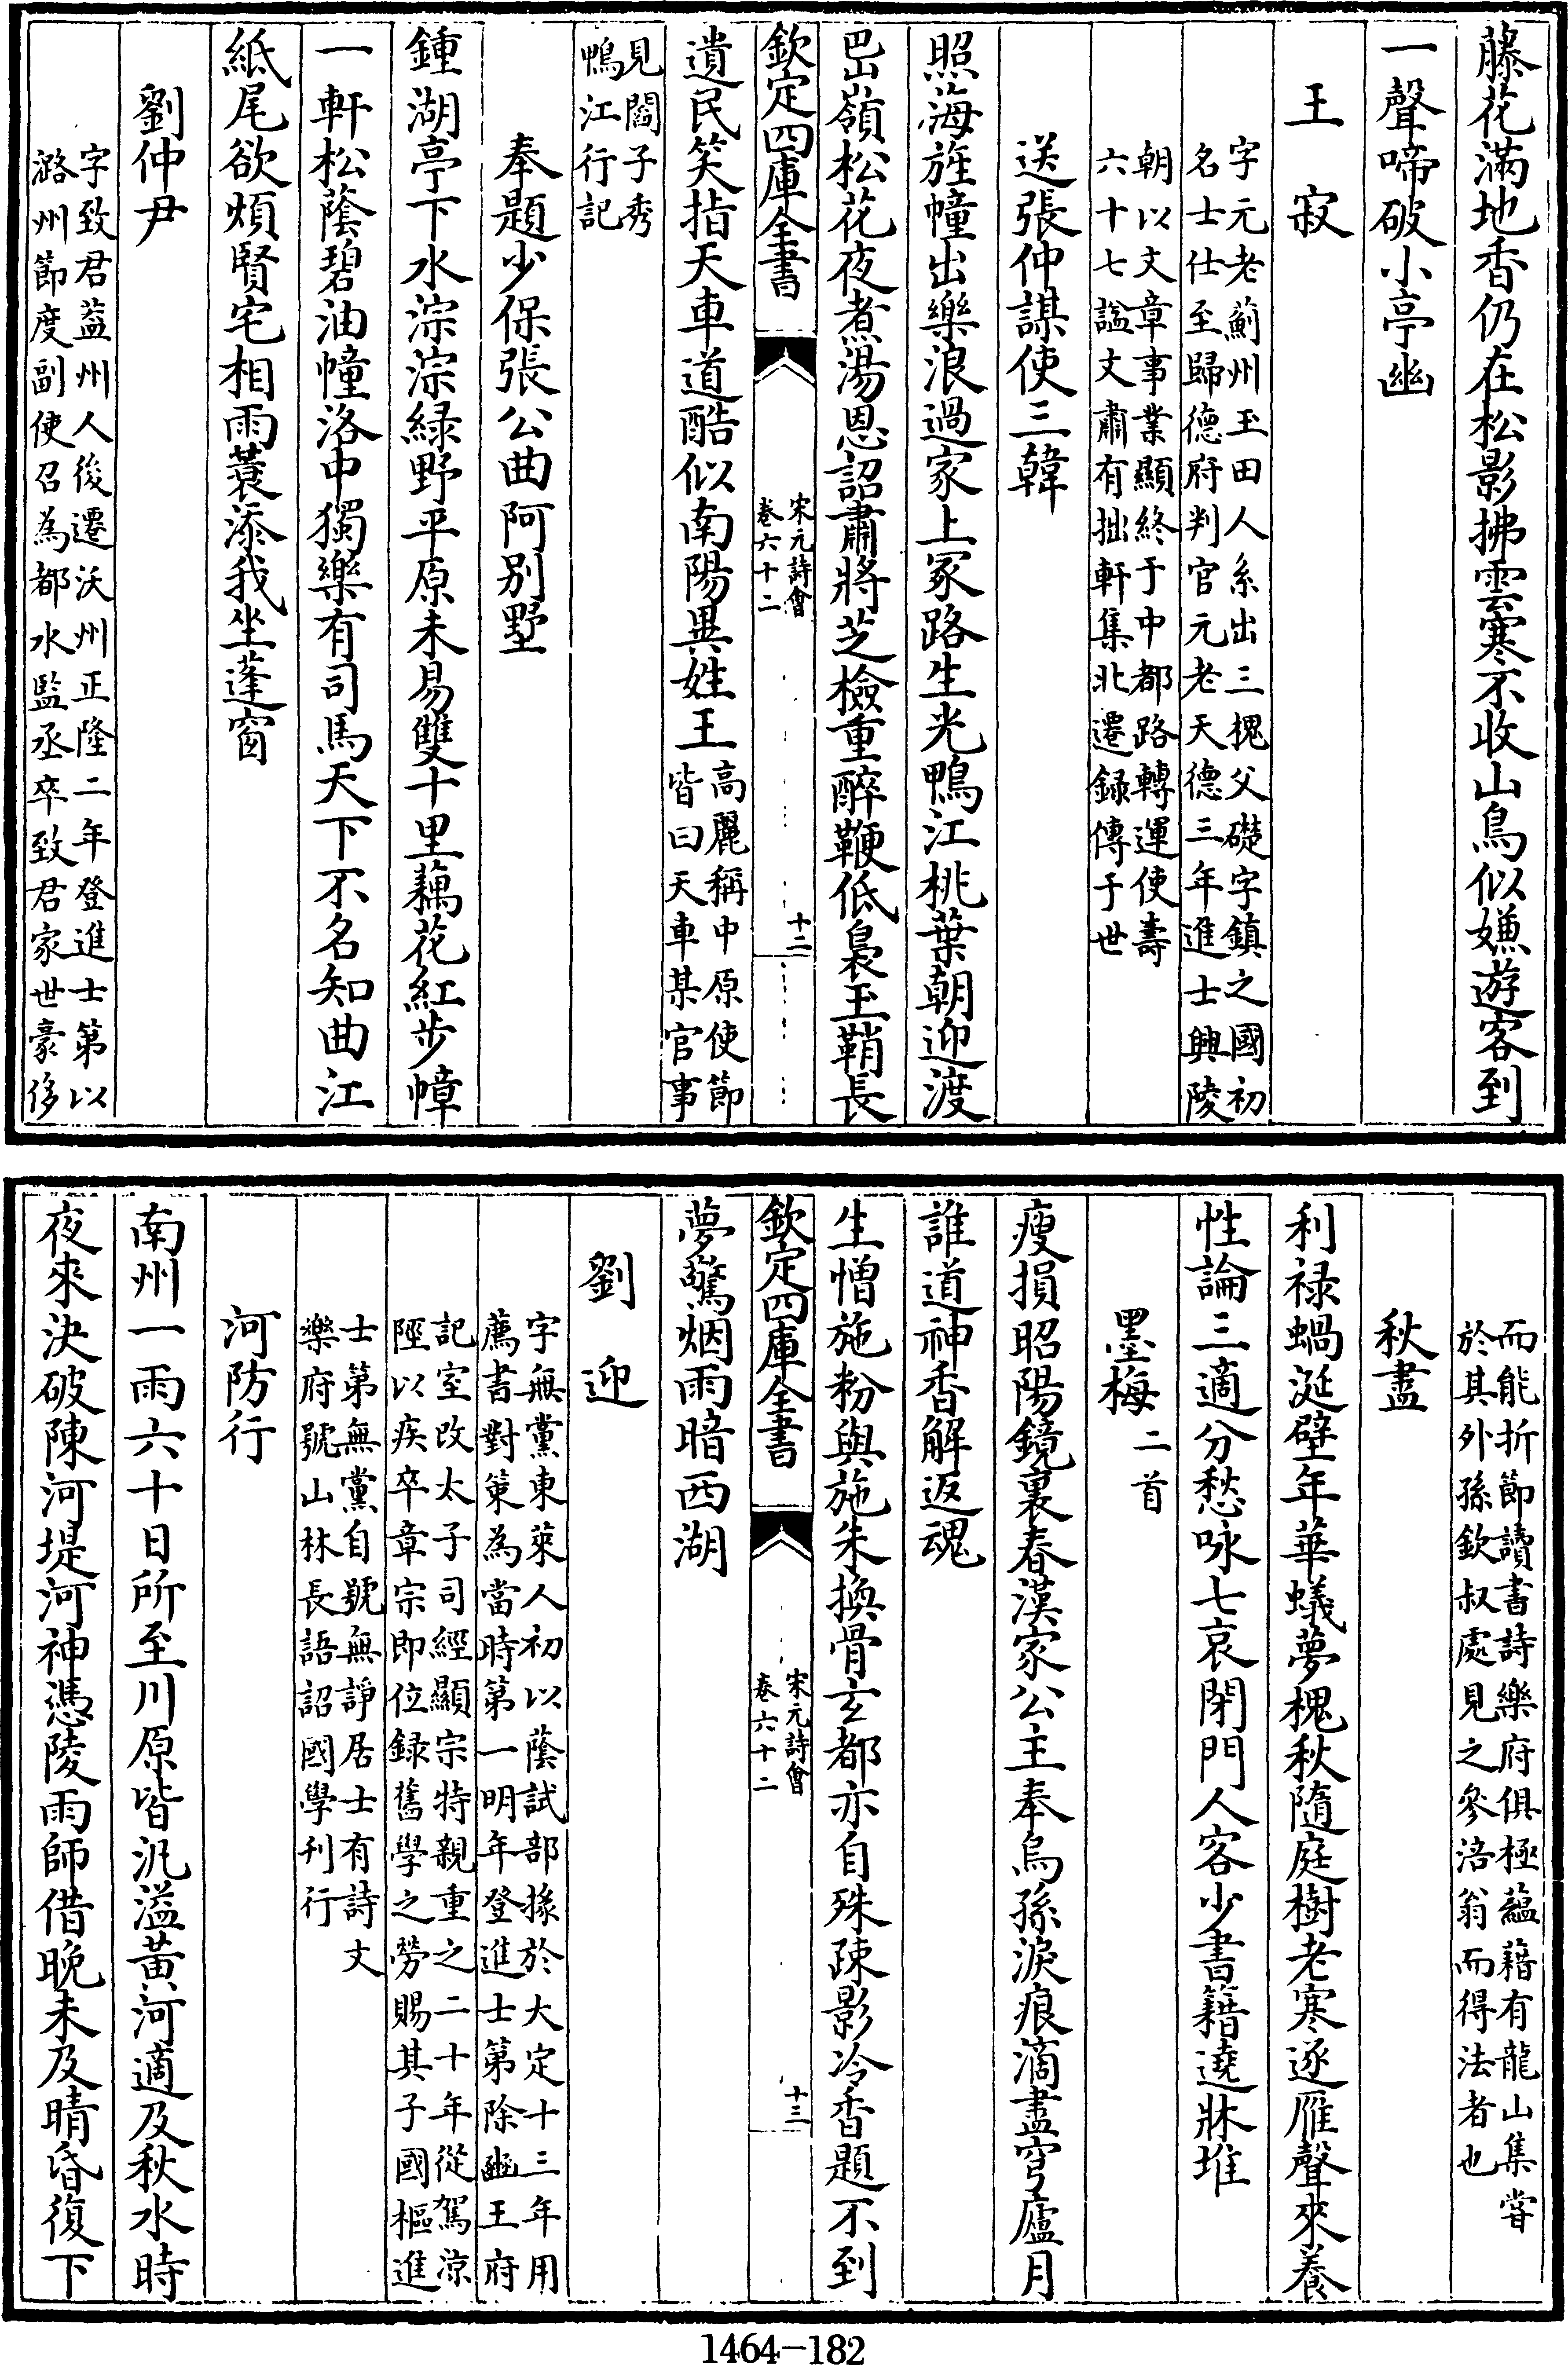 藤花滿地香仍在松影拂雲寒不收山鳥似嫌遊客到
一聲啼破小亭幽
王寂
字元老薊州玉田人系出三槐父礎字鎮之國初
名士仕至歸德府判官元老天德三年進士興陵
朝以文章事業顯終于中都路轉運使壽
六十七謚文肅有拙軒集北遷録傳于世
送張仲謀使三韓
照海旌幢出樂浪過家上冢路生光鴨江桃葉朝迎渡
嶺松花夜煮湯恩詔肅將芝檢重醉鞭低裊玉鞘長
欽定四庫全書
宋元詩會
卷六十二
十二
遺民笑指天車道酷似南陽異姓王
高麗稱中原使節
皆曰天車某官事
見閻子秀
鴨江行記
奉題少保張公曲阿别墅
鍾湖亭下水淙淙緑野平原未易雙十里藕花紅步幛
一軒松蔭碧油幢洛中獨樂有司馬天下不名知曲江
紙尾欲煩賢宅相雨蓑添我坐蓬窗
劉仲尹
字致君葢州人後遷沃州正隆二年登進士第以
潞州節度副使召為都水監丞卒致君家世豪侈
而能折節讀書詩樂府俱極蘊藉有龍山集嘗
於其外孫欽叔處見之參涪翁而得法者也
秋盡
利禄蝸涎壁年華蟻夢槐秋隨庭樹老寒逐雁聲來養
性論三適分愁咏七哀閉門人客少書籍遶牀堆
墨梅
二首
瘦損昭陽鏡裏春漢家公主奉烏孫淚痕滴盡穹廬月
誰道神香解返魂
生憎施粉與施朱換骨玄都亦自殊疎影冷香題不到
欽定四庫全書
宋元詩會
卷六十二
十三
夢驚烟雨暗西湖
劉迎
字無黨東萊人初以蔭試部掾於大定十三年用
薦書對策為當時第一明年登進士第除豳王府
記室改太子司經顯宗特親重之二十年從駕涼
陘以疾卒章宗即位録舊學之勞賜其子國樞進
士第無黨自號無諍居士有詩文
樂府號山林長語詔國學刊行
河防行
南州一雨六十日所至川原皆汎溢黄河適及秋水時
夜來決破陳河堤河神憑陵雨師借晚未及晴昏復下
1464-182